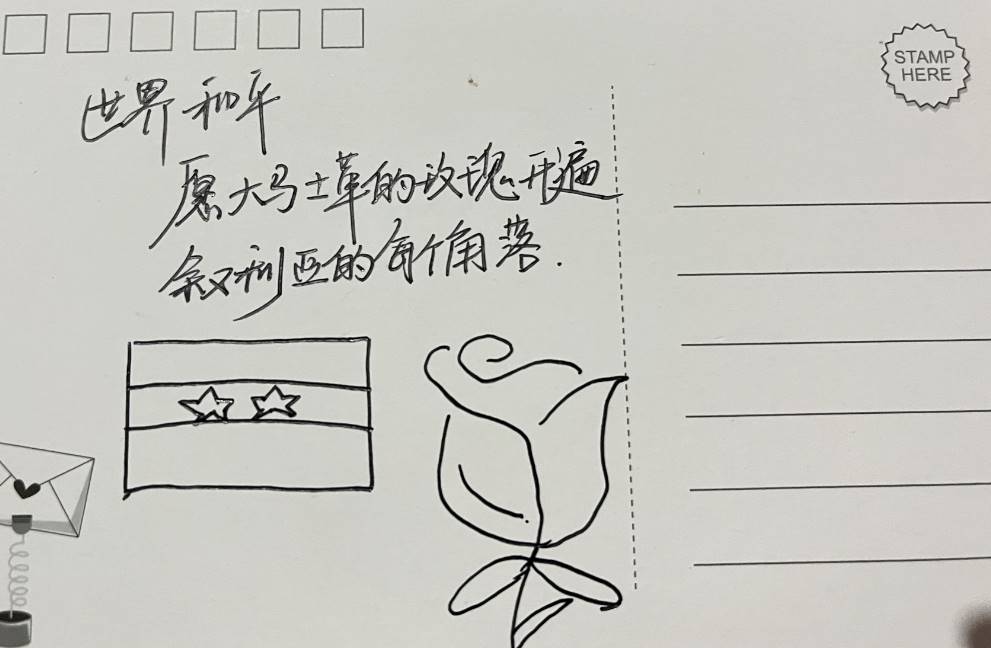 世界和平
愿大马士革的玫瑰开遍
叙利亚的每个角落.
STAMP
HERE